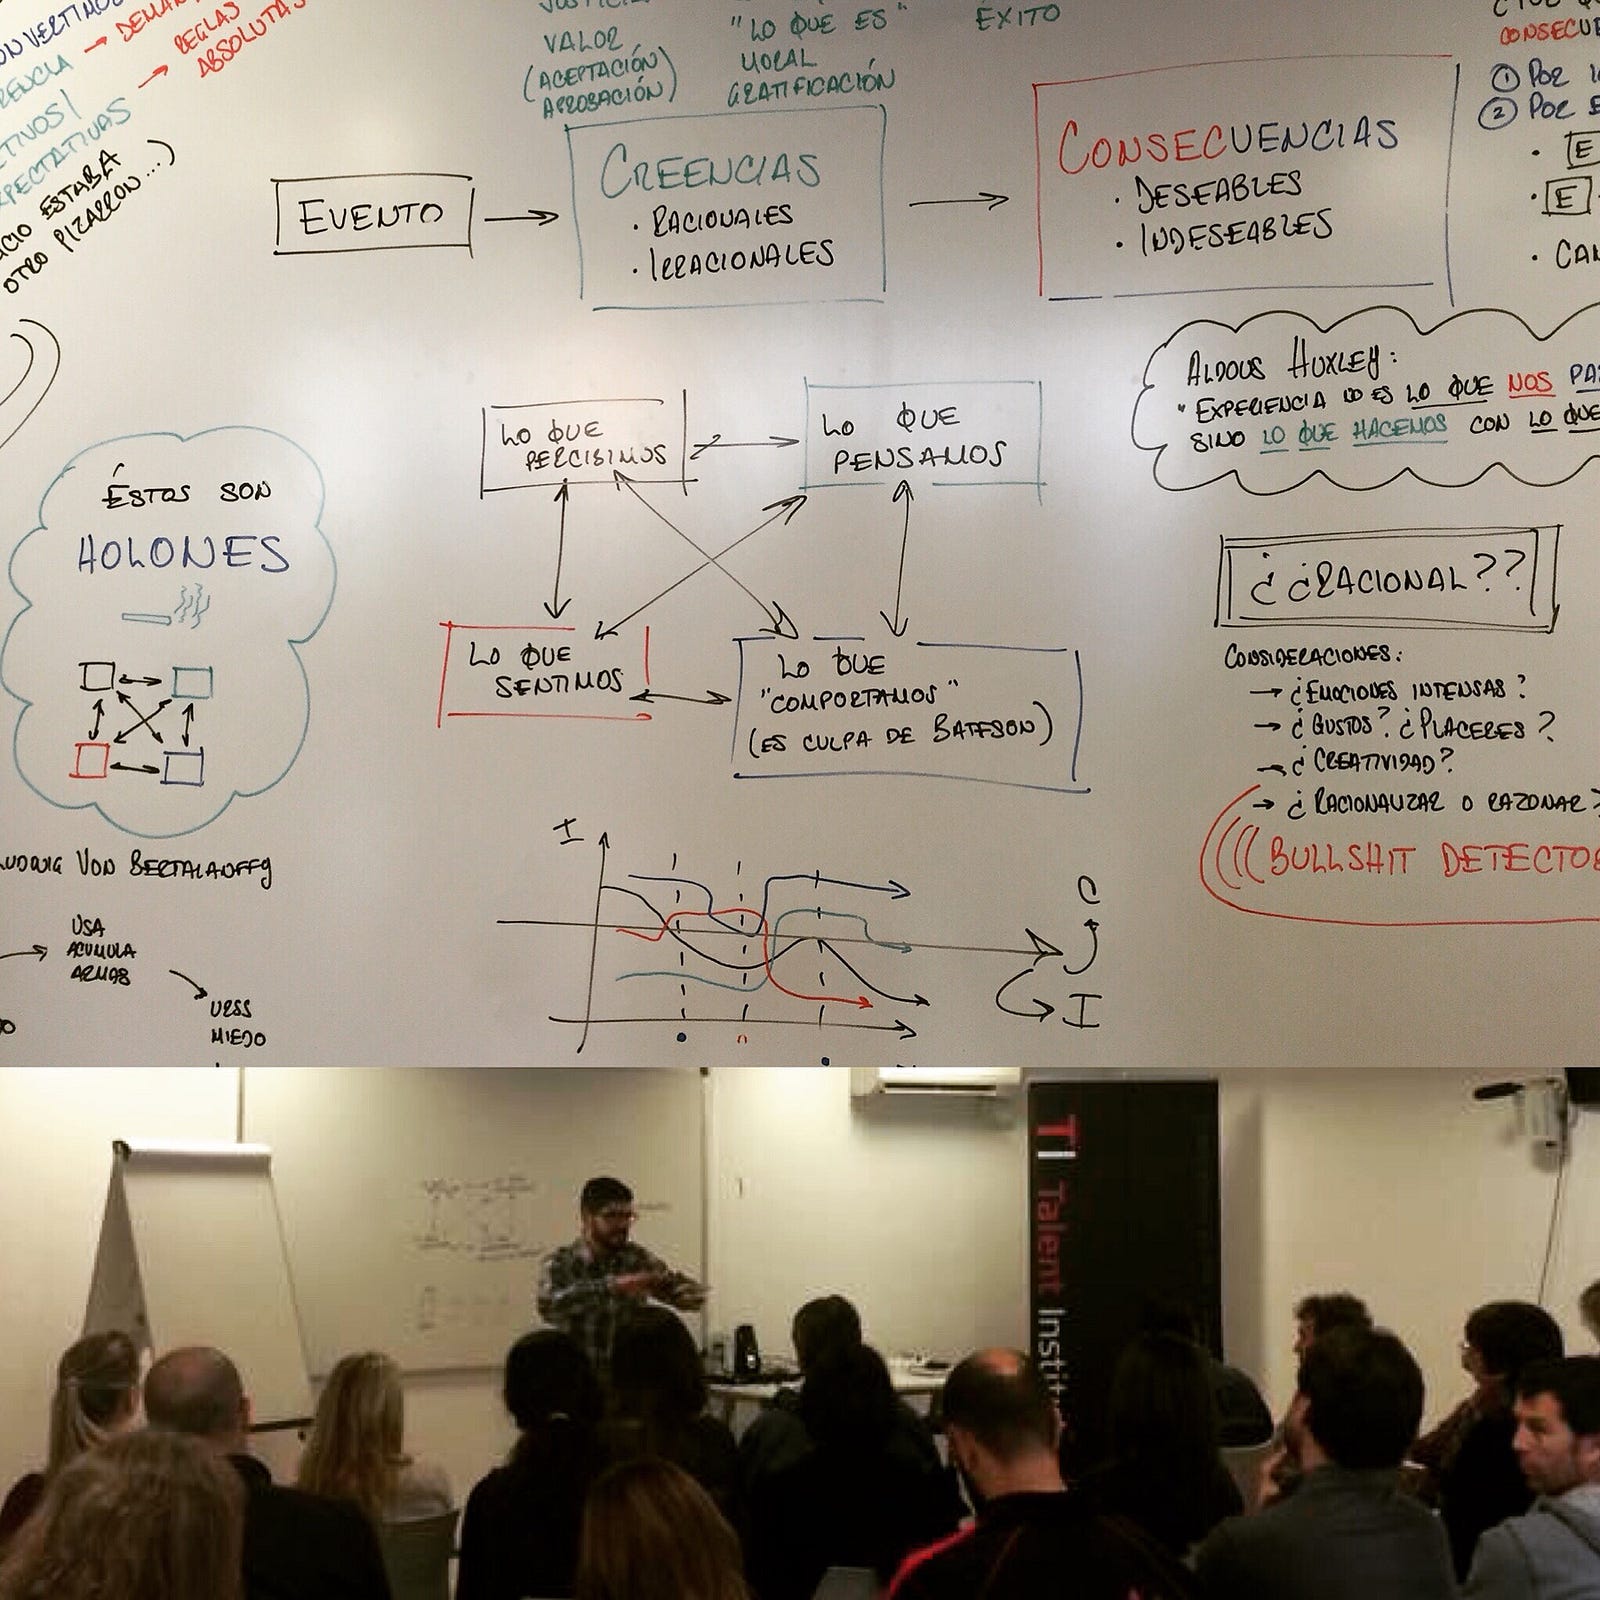 REGLAS
ABSOLUTAS
OTRO PIZARRON...)
VALOR
(ACEPTACIÓN)
APROBACIÓN)
"LO QUE ES"
MORAL
GRATIFICACIÓN
ÉXITO
EVENTO
CREENCIAS
· RACIONALES
· IRRACIONALES
CONSECUENCIAS
· DESEABLES
· INDESEABLES
① POR
② POR
· E
· E
ALDOUS HUXLEY:
"EXPERIENCIA NO ES LO QUE NOS
SINO LO QUE HACEMOS CON LO QUE
LO QUE
PERCIBIMOS
LO QUE
PENSAMOS
LO QUE
SENTIMOS
LO QUE
"COMPORTAMOS"
(ES CULPA DE BATESON)
ÉSTOS SON
HOLONES
¿¿RACIONAL??
CONSIDERACIONES:
→ ¿EMOCIONES INTENSAS?
→ ¿GUSTOS? ¿PLACERES?
→ ¿CREATIVIDAD?
→ ¿RACIONALIZAR O RAZONAR?
BULLSHIT
VON BERTALANFFY
USA
ACUMULA
ARMAS
URSS
MIEDO
I
C
I
TI Talent